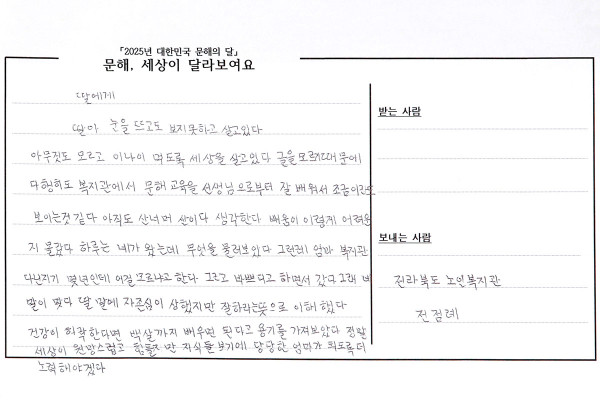 「2025년 대한민국 문해의 달」
문해, 세상이 달라보여요
딸에게
딸아 눈을 뜨고도 보지못하고 살고있다
아무것도 모르고 이나이 먹도록 세상을 살고있다 글을 모르기때문에
다행히도 복지관에서 문해 교육을 선생님으로부터 잘 배워서 조금이라도
보이는것 같다 아직도 산너머 산이다 생각한다 배움이 이렇게 어려운
지 몰랐다 하루는 네가 왔는데 무엇을 물러보았다 그런데 엄마 복지관
다닌지가 몇년인데 이걸 모르냐고 한다 그르고 바쁘다고 하면서 갔다 그래 네
말이 맞다 딸 말에 자존심이 상했지만 잘하라는뜻으로 이해 했다
건강이 허락한다면 백살까지 배우면 된다고 용기를 가져보았다 정말
세상이 원망스럽고 힘들지만 자식들 보기에 당당한 엄마가 되도록 더
노력해야겠다
받는 사람
보내는 사람
전라북도 노인복지관
전점례